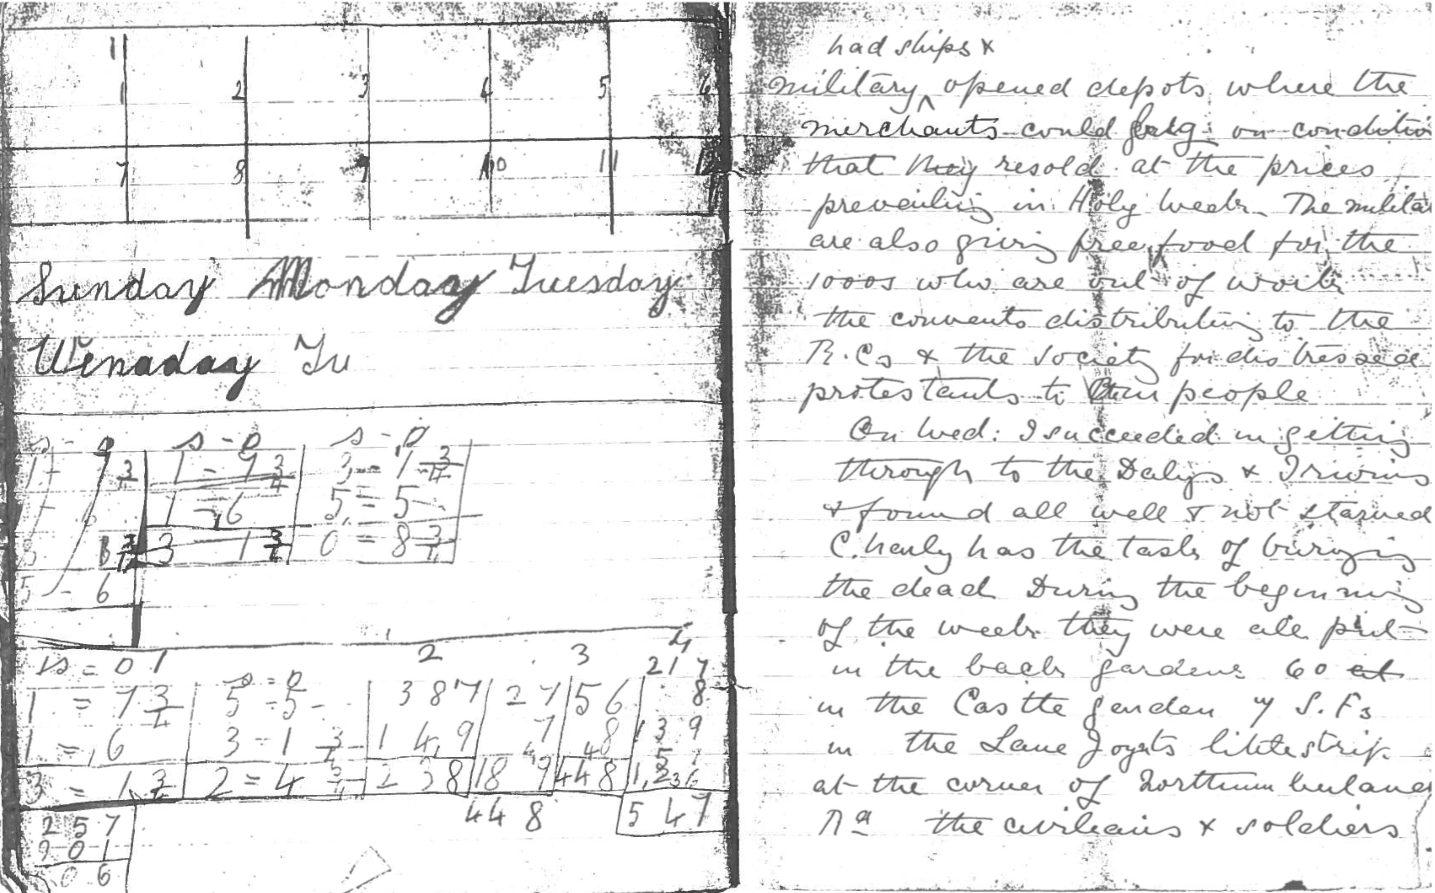 1
1 2 3 4 5 6
7 8 9 10 11 12
Sunday Monday Tuesday
Wenaday Tu
s - p s - p
1 - 7 3/4 3 = 1 3/4
1 - 6 5 = 5
3 1 3/4 0 = 8 3/4
5 - 6
1 2 3 4
s = 0 s = 0 217
1 = 7 3/4 5 - 5 - 387 27 56 8
1 = 6 3 - 1 3/4 149 7 8 139
3 = 1 3/4 2 = 4 238 189 448
448 547
257
201
06
had ships &
military ^ opened depots where the
merchants could on condition
that they resold at the prices
prevailing in Holy Week. The militar
are also giving free food for the
1000s who are out of work
the convents distributing to the
R.Cs & the society for distressed
protestants to our people
On Wed: I succeeded in getting
through to the Dalys & Irwins
& found all well & not starved
C. has the task of burying
the dead During the beginning
of the week they were all put
in the back gardens 60 at
in the Castle garden 7 S.Fs
in the Lane little strip
at the corner of Northumberland
Rd the civilians & soldiers